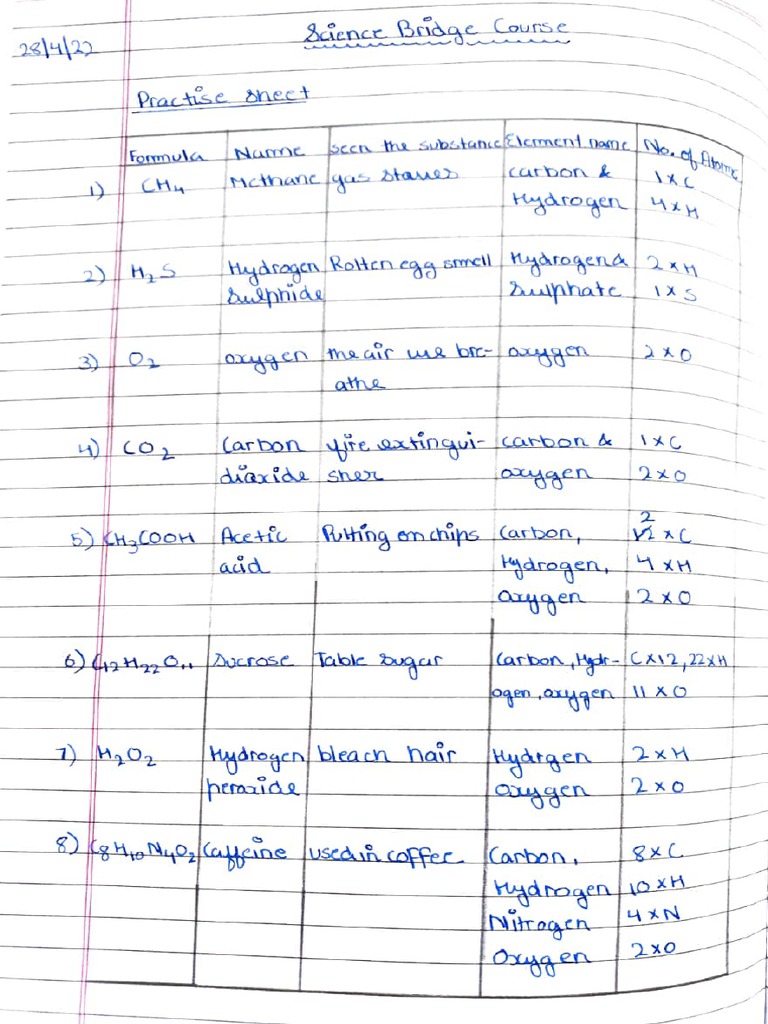 Science Bridge Course
28/4/22
Practise sheet
Formula Name seen the substance Element name No. of Atoms
1) CH₄ Methane gas stoves carbon & 1×C
Hydrogen 4×H
2) H₂S Hydrogen Rotten egg smell Hydrogen & 2×H
Sulphide Sulphate 1×S
3) O₂ oxygen the air we bre- oxygen 2×O
athe
4) CO₂ Carbon fire extingui- carbon & 1×C
dioxide sher oxygen 2×O
5) CH₃COOH Acetic Putting on chips Carbon, 2×C
acid Hydrogen, 4×H
oxygen 2×O
6) C₁₂H₂₂O₁₁ Sucrose Table Sugar Carbon, Hydr- C×12, 22×H
ogen, oxygen 11×O
7) H₂O₂ Hydrogen bleach hair Hydrgen 2×H
peroxide oxygen 2×O
8) C₈H₁₀N₄O₂ Caffeine used in coffee Carbon, 8×C
Hydrogen 10×H
Nitrogen 4×N
Oxygen 2×O